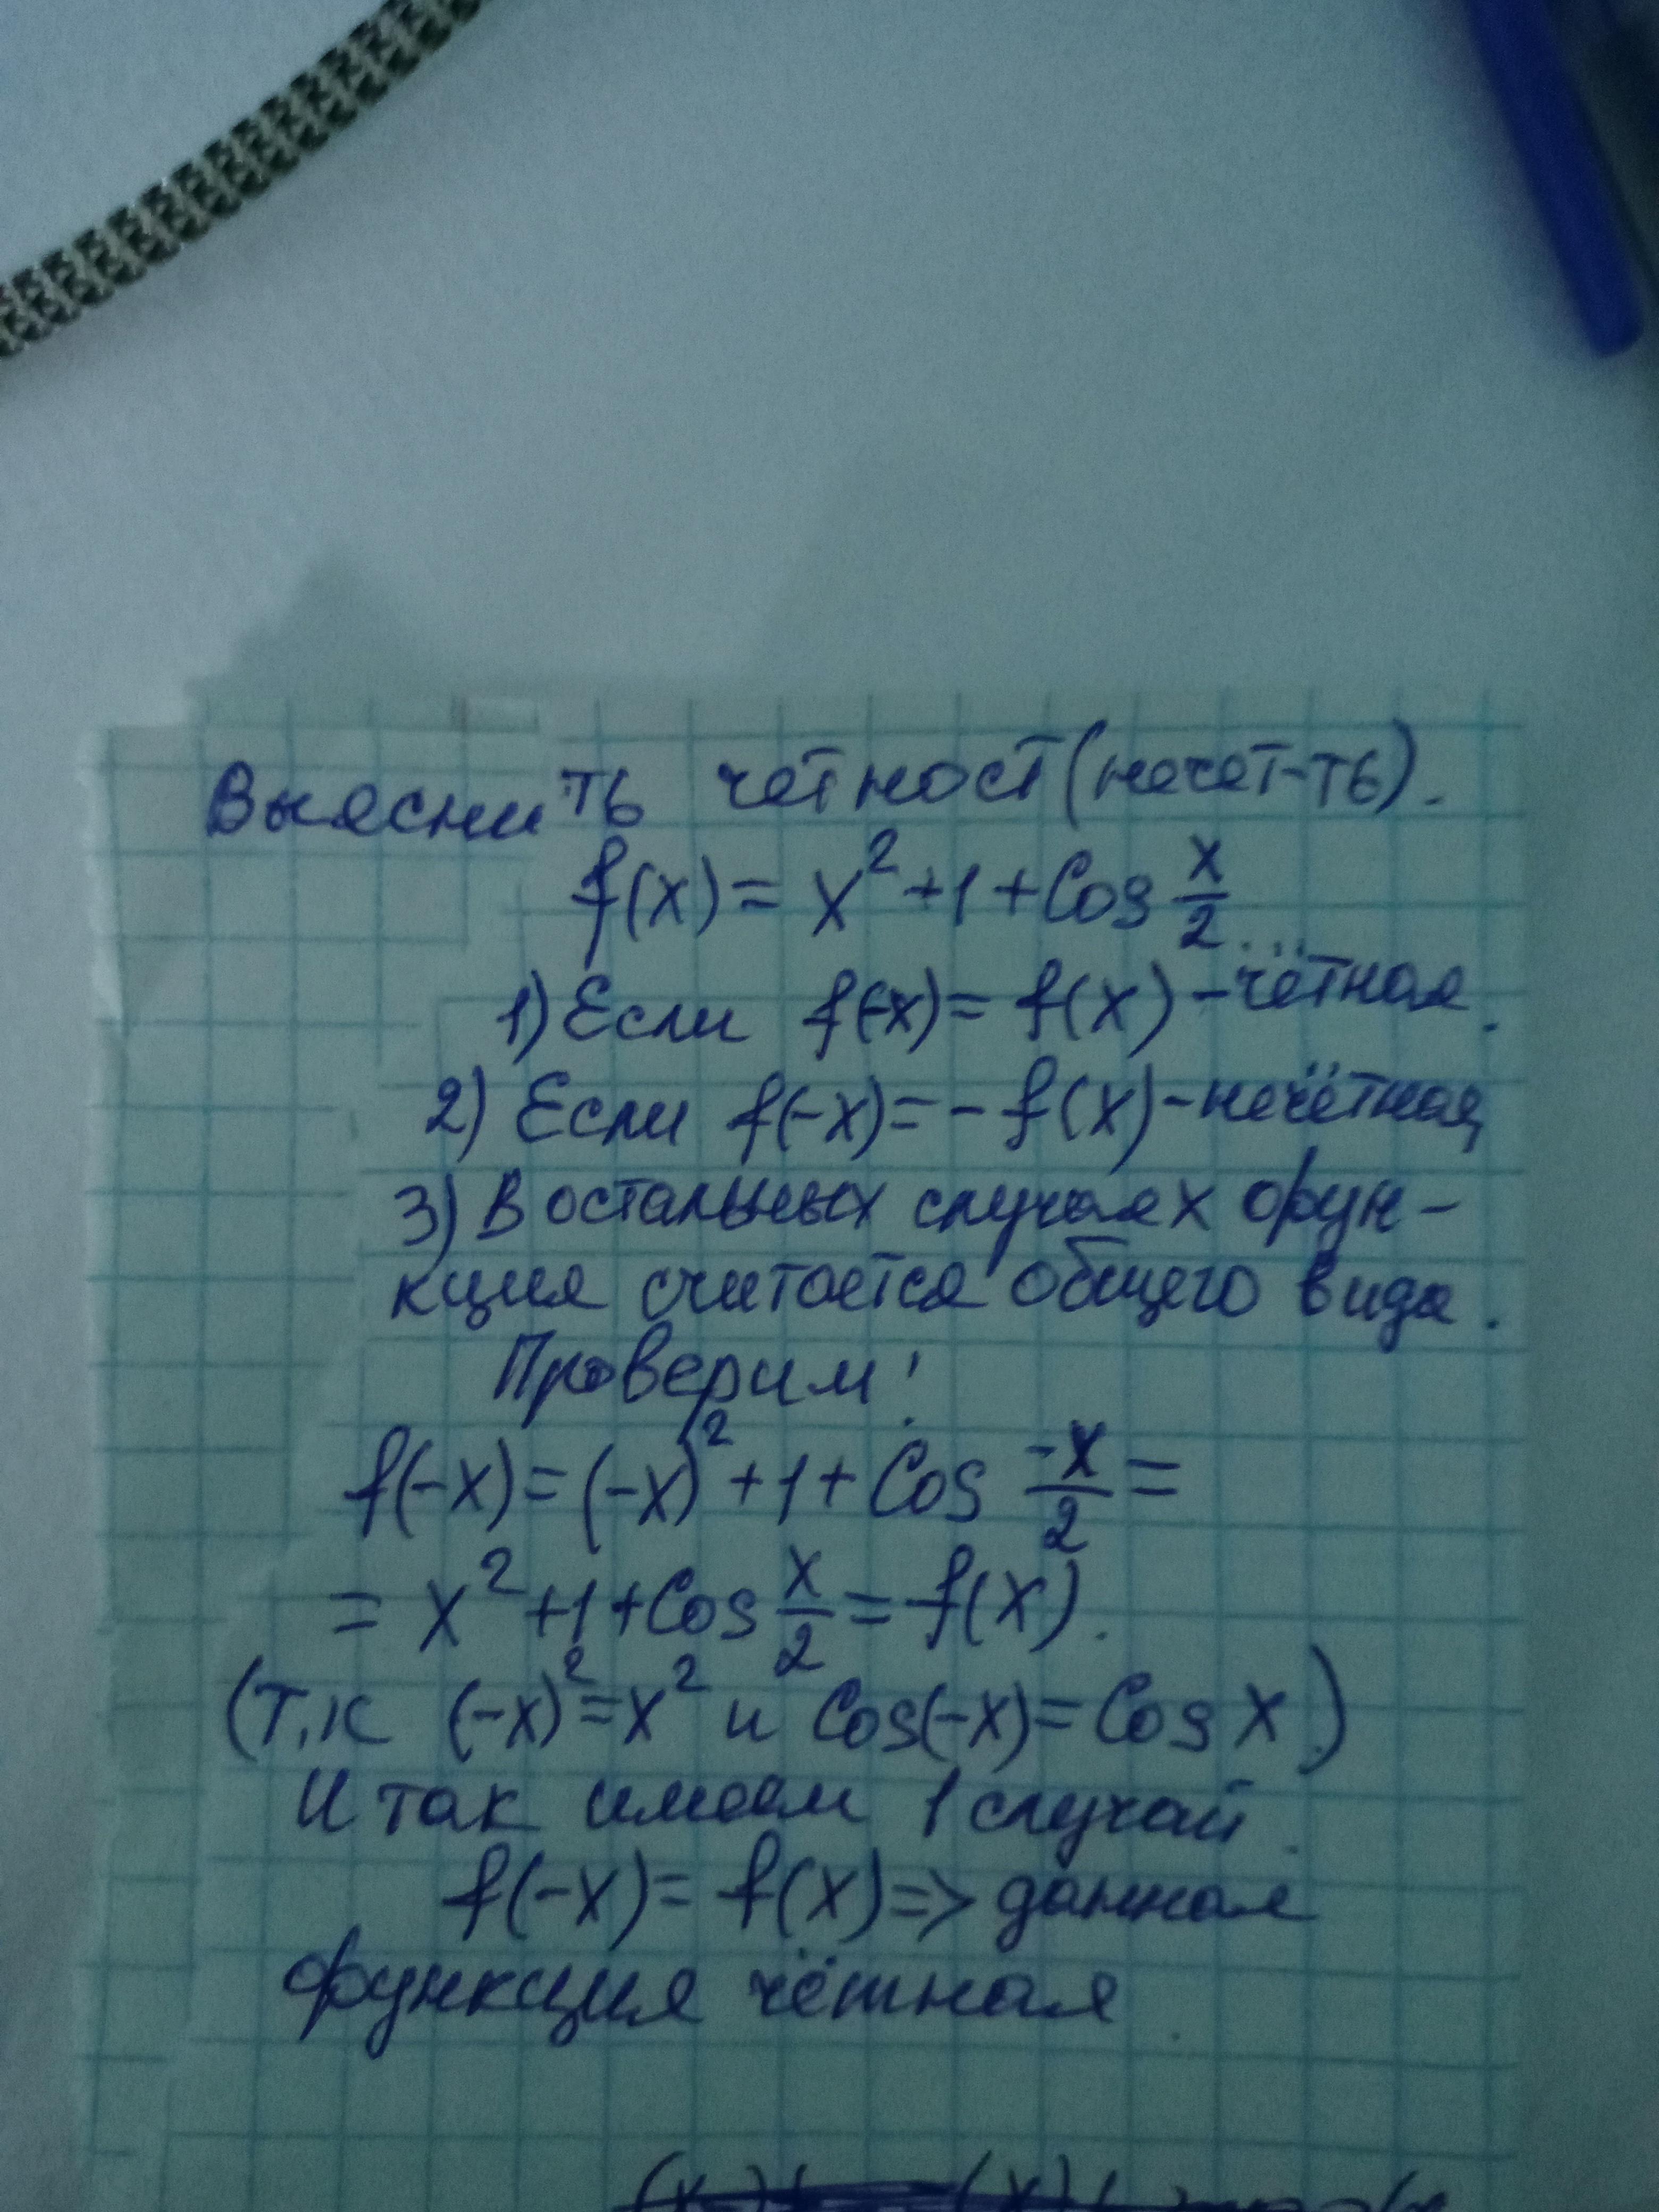 Выяснить четност (нечет-ть).
f(x) = x² + 1 + Cos x/2.
1) Если f(-x) = f(x) - чётная.
2) Если f(-x) = - f(x) - нечётная,
3) В остальных случаях фун-
кция считается общего вида.
Проверим:
f(-x) = (-x)² + 1 + Cos -x/2 =
= x² + 1 + Cos x/2 = f(x).
(т.к (-x)² = x² и Cos(-x) = Cos x.)
Итак имеем 1 случай.
f(-x) = f(x) => данная
функция чётная.